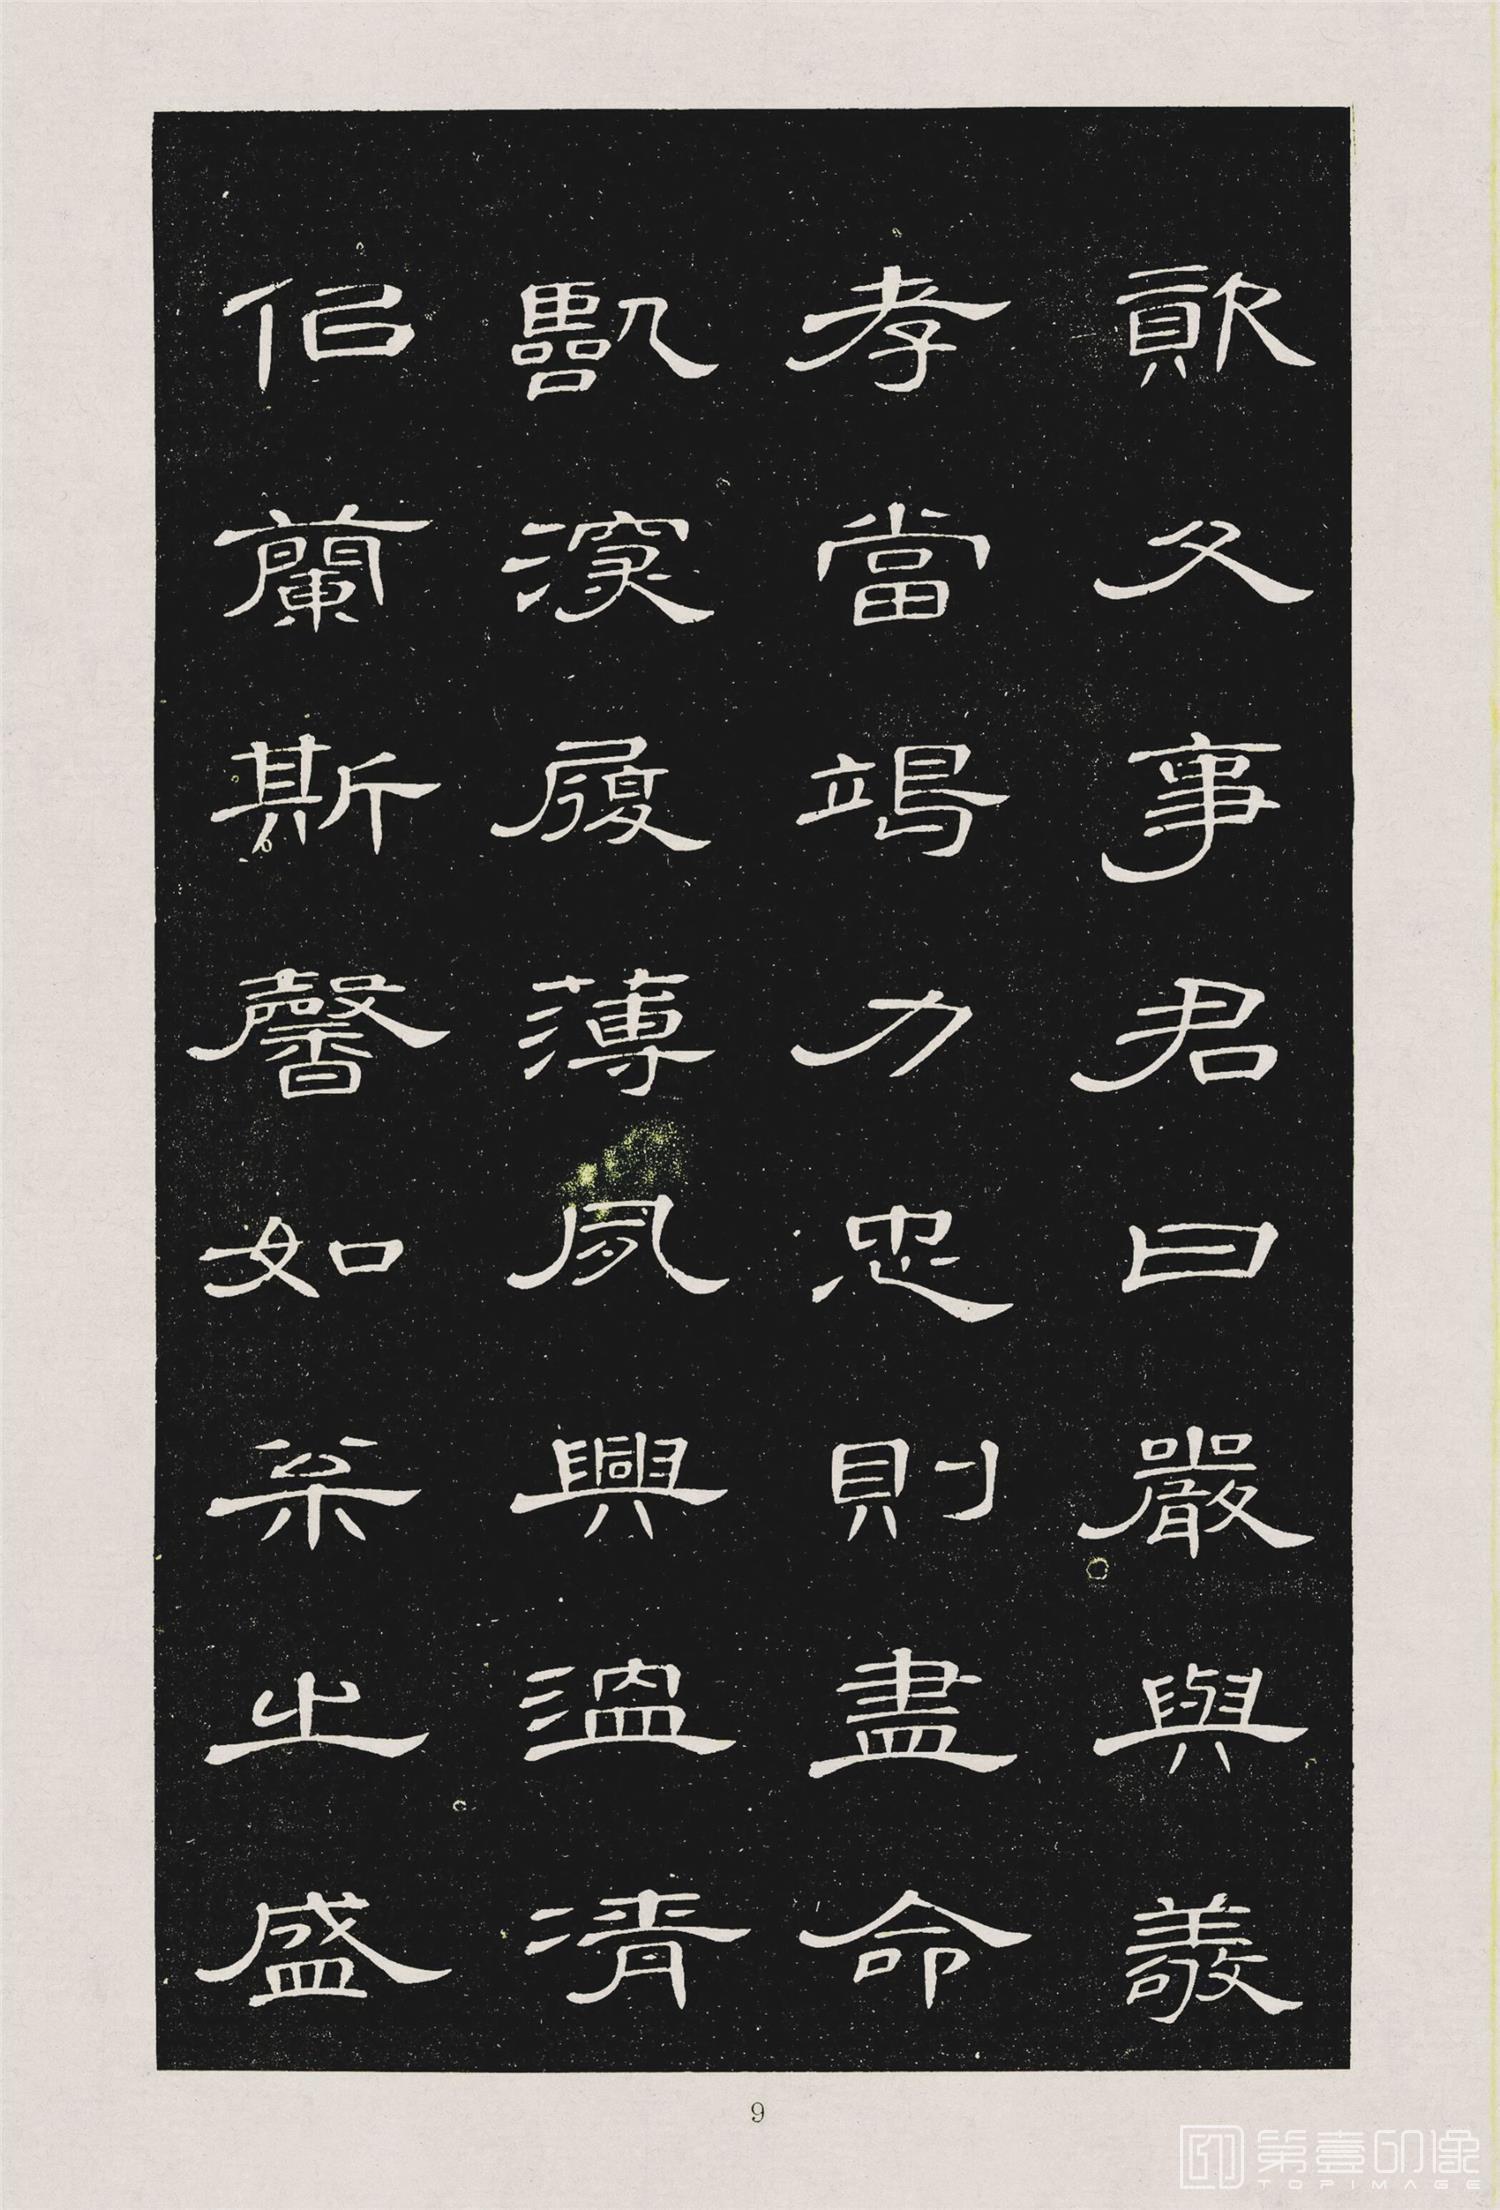 資父事君曰嚴與敬
孝當竭力忠則盡命
臨深履薄夙興溫凊
似蘭斯馨如松之盛
9
第壹印像
TOPIMAGE